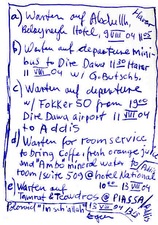 a) Warten auf Abdullh, Harar
Belayneh Hotel, 9 VIII 04
b) Warten auf departure Mini-
bus to Dire Dawa 11 30 Harar
11 VIII 04 w/ G. Butschs.
c) Warten auf departure
w/ Fokker 50 from 19 00
Dire Dawa airport 11 VIII 04
to Addis
d) Warten for room service
to bring Coffee, fresh orange juice
and "Ambo" mineral water to
room/suite 509 @ hotel National
e) Warten auf 10 25 13 VIII 04
Tamrat & Tewodros @ PIASSA/
"Inshallah" 13 VIII 04